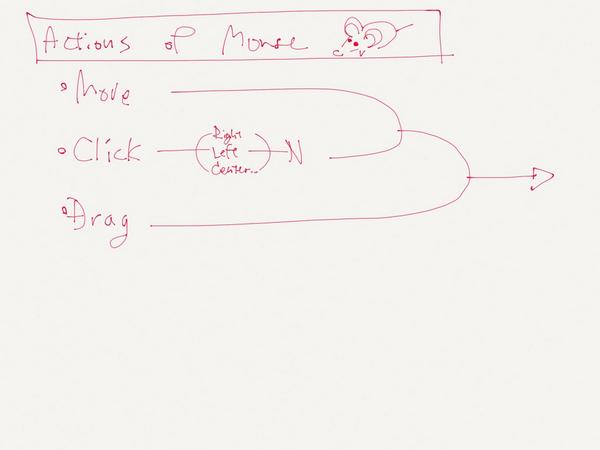 Actions of Mouse
• Move
• Click
Right
Left
Center..
N
• Drag